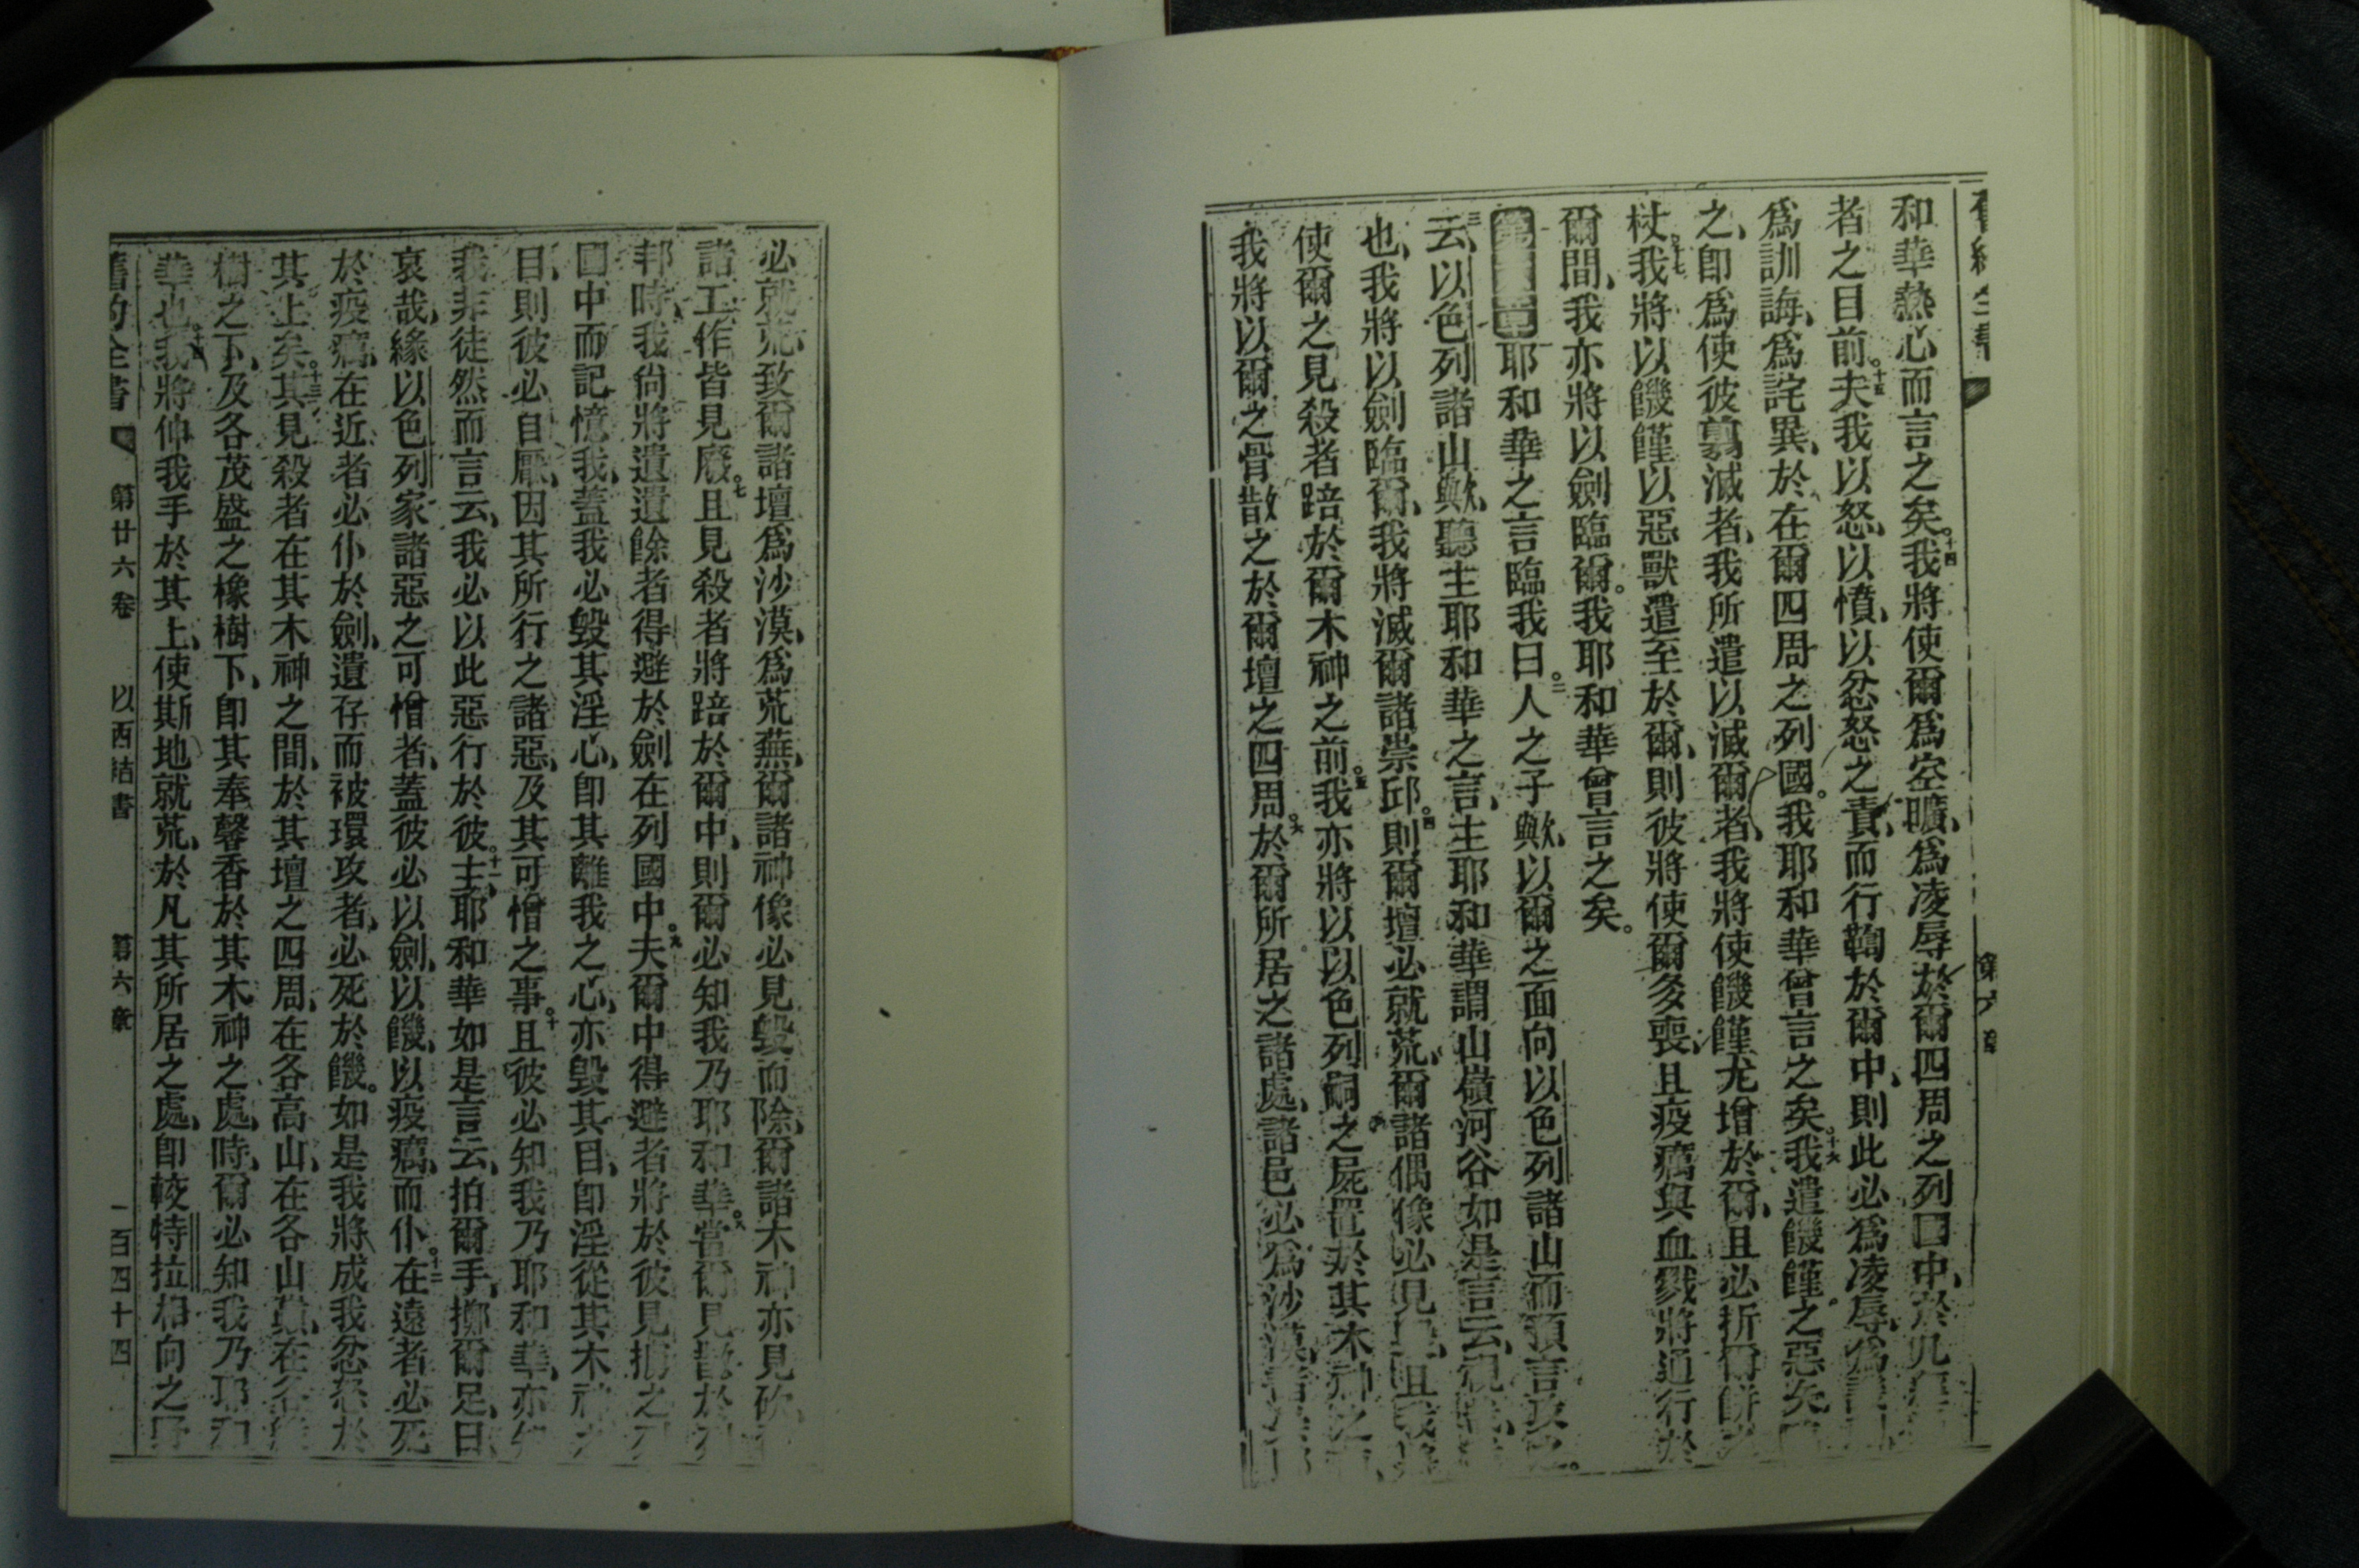 和華熱心而言之矣。十四我將使爾爲空曠、爲凌辱於爾四周之列國中、於凡
者之目前。十五夫我以怒、以憤、以忿怒之責、而行鞫於爾中、則此必爲凌辱、爲
爲訓誨、爲詫異、於在爾四周之列國。我耶和華曾言之矣。十六我遣饑饉。之惡矢
之、即爲使彼剪滅者、我所遣以滅爾者、我將使饑饉尤增於爾、且必折爾餅之
杖。十七我將以饑饉以惡獸遣至於爾、則彼將使爾多喪、且疫癘與血戮將通行於
爾間、我亦將以劍臨爾。我耶和華曾言之矣。
第六章耶和華之言臨我曰。二人之子歟、以爾之面向以色列諸山而預言攻之。
三云、以色列諸山歟、聽主耶和華之言、主耶和華謂山嶺河谷如是言云、視哉、
也、我將以劍臨爾、我將滅爾諸崇邱。四則爾壇必就荒、爾諸偶像必見毀、且我將
使爾之見殺者踣於爾木神之前。五我亦將以以色列嗣之屍置於其木神之前、
我將以爾之骨散之於爾壇之四周。六於爾所居之諸處、諸邑必爲沙漠、
必就荒、致爾諸壇爲沙漠、爲荒蕪、爾諸神像必見毀而除、爾諸木神亦見砍、
諸工作皆見廢。七且見殺者將踣於爾中、則爾必知我乃耶和華。八當爾見散於列
邦時、我尙將遺遺餘者得避於劍在列國中。九夫爾中得避者將於彼見擄之列
國中而記憶我、蓋我必毀其淫心、即其離我之心、亦毀其目、即淫從其木神之
目、則彼必自厭、因其所行之諸惡、及其可憎之事。十且彼必知我乃耶和華、亦知
我非徒然而言云、我必以此惡行於彼。十一主耶和華如是言云、拍爾手、擲爾足、曰、
哀哉、緣以色列家諸惡之可憎者、蓋彼必以劍、以饑、以疫癘、而仆。十二在遠者必死
於疫癘、在近者必仆於劍、遺存而被環攻者、必死於饑。如是我將成我忿怒於
其上矣。十三其見殺者在其木神之間、於其壇之四周、在各高山、在各山巔、在各
樹之下、及各茂盛之橡樹下、即其奉馨香於其木神之處、時、爾必知我乃耶和
華也。十四我將伸我手於其上、使斯地就荒、於凡其所居之處、即較特拉相向之野
舊約全書 第廿六卷 以西結書 第六章 一百四十四